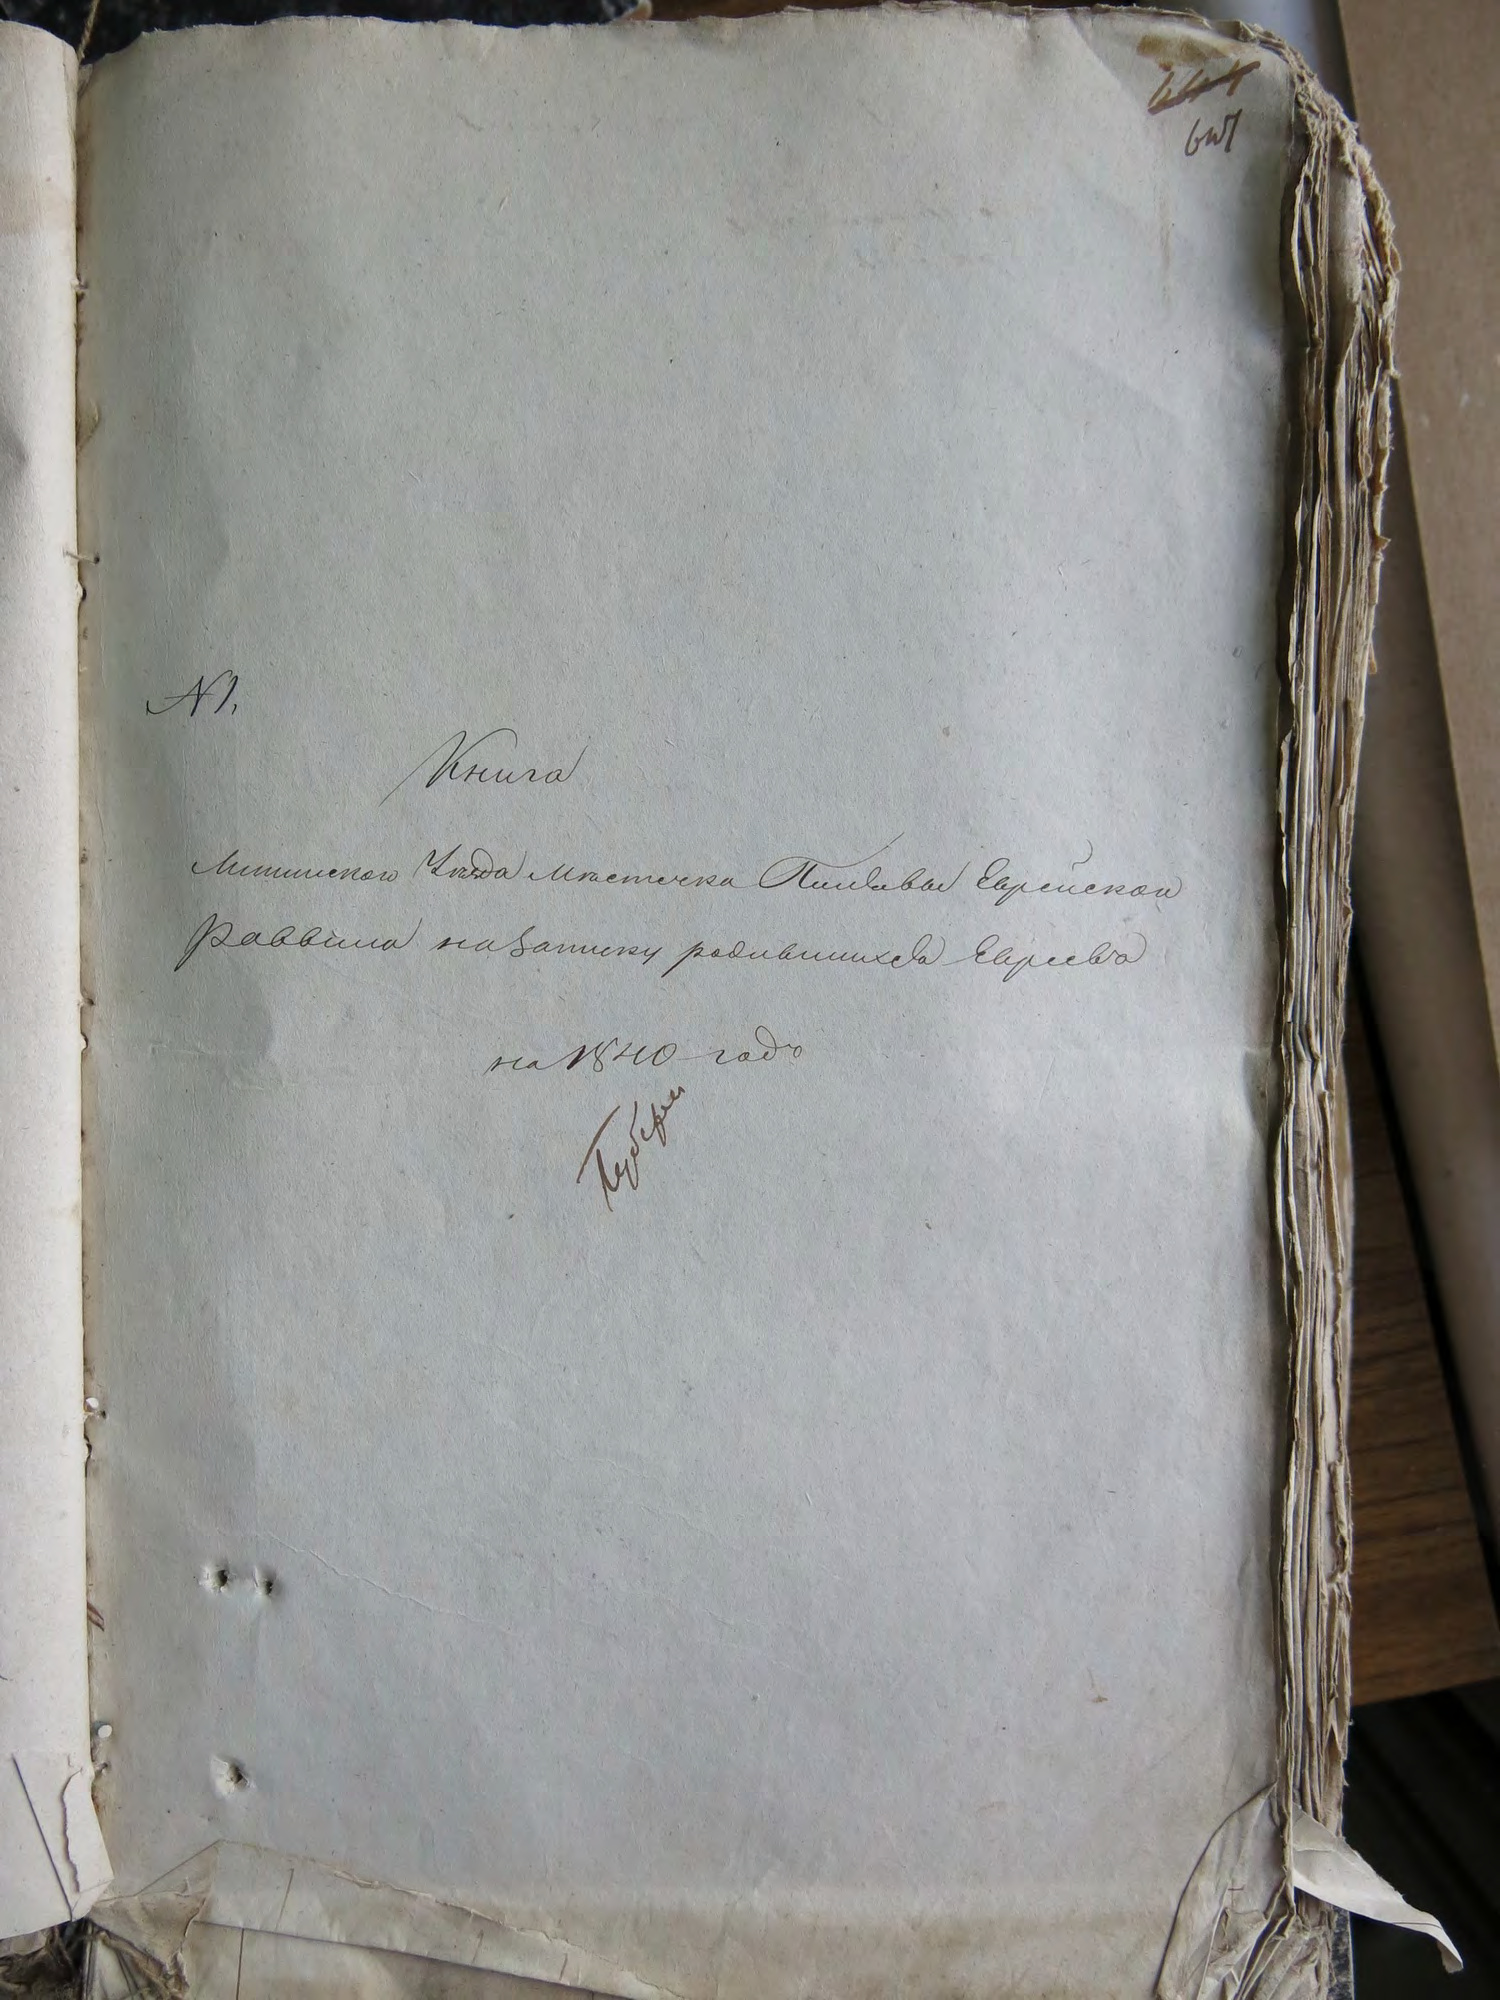 № 1.
Книга
Литинского Уѣзда Мѣстечка Пилявы Еврейскаго
Раввина на записку родившихся Евреевъ
на 1840 годъ